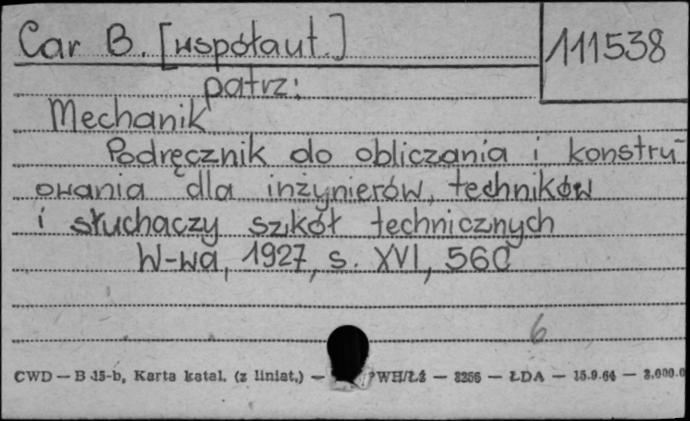 Car B. [współaut.]
111538
patrz:
Mechanik
Podręcznik do obliczania i konstru-
owania dla inżynierów, techników
i słuchaczy szkół technicznych
W-wa, 1927, s. XVI, 560
6
CWD — B 15-b, Karta katal. (z liniat.) — PWH/Łż — 3266 — ŁDA — 15.9.64 — 3.000.0